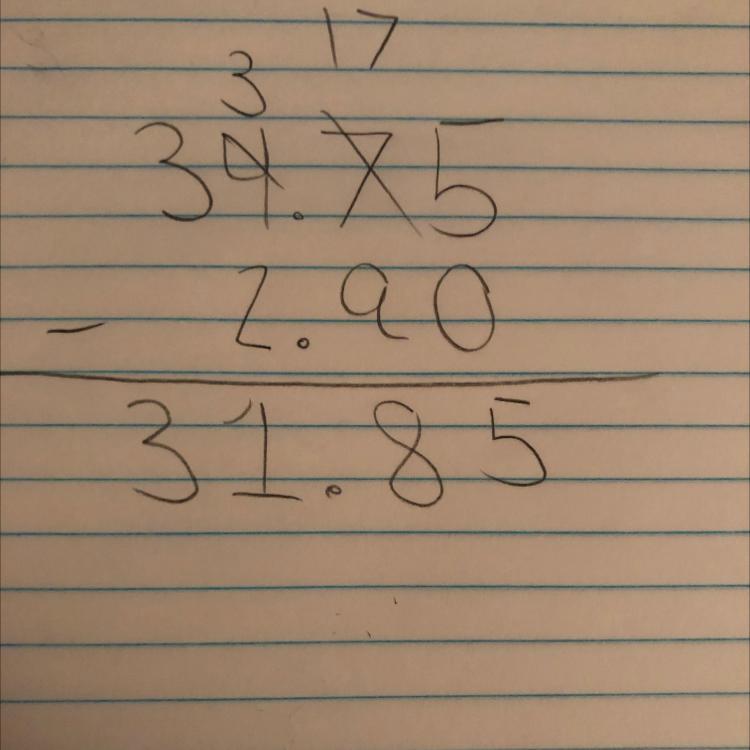 3 17
34.75
- 2.90
31.85